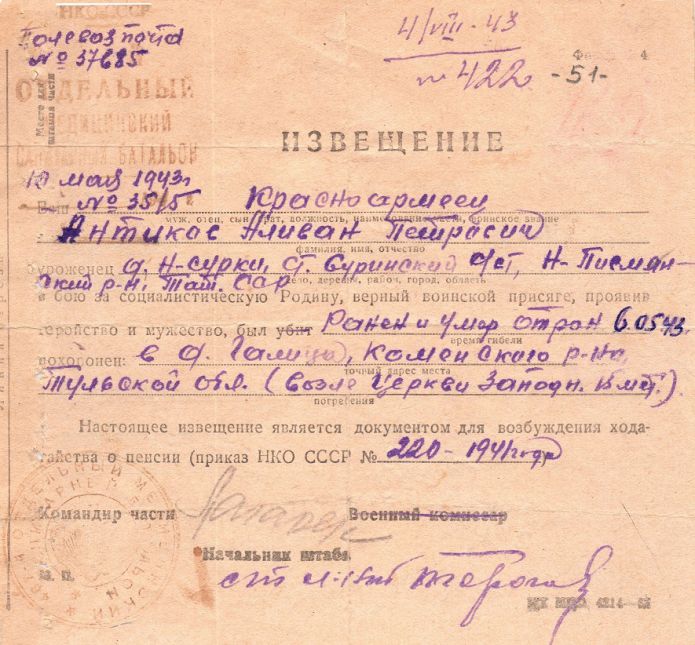 НКО СССР
Полевая почта
№ 37685
4/VIII-43
№ 422 -51-
4
Место для
штампа части
ОТДЕЛЬНЫЙ
МЕДИЦИНСКИЙ
САНИТАРНЫЙ БАТАЛЬОН
ИЗВЕЩЕНИЕ
10 мая 1943г
№ 35/5
Ваш Красноармеец
муж, отец, сын, брат, должность, наименование части, воинское звание
Антикас Аливан Петрасич
фамилия, имя, отчество
уроженец д. Н-сурки, ст. Суринский с/ст, Н-Писман-
село, деревня, район, город, область
ский р-н, Тат. ССР
в бою за социалистическую Родину, верный воинской присяге, проявив
геройство и мужество, был убит Ранен и умер от ран 6.05.43.
время гибели
похоронен: в д. Галица, Каменского р-на
точный адрес места
Тульской обл. (возле церкви Западн.
погребения
Настоящее извещение является документом для возбуждения хода-
тайства о пенсии (приказ НКО СССР № 220-1941 года)
Командир части
Военный комиссар
Начальник штаба
М. П.
ст л-нт